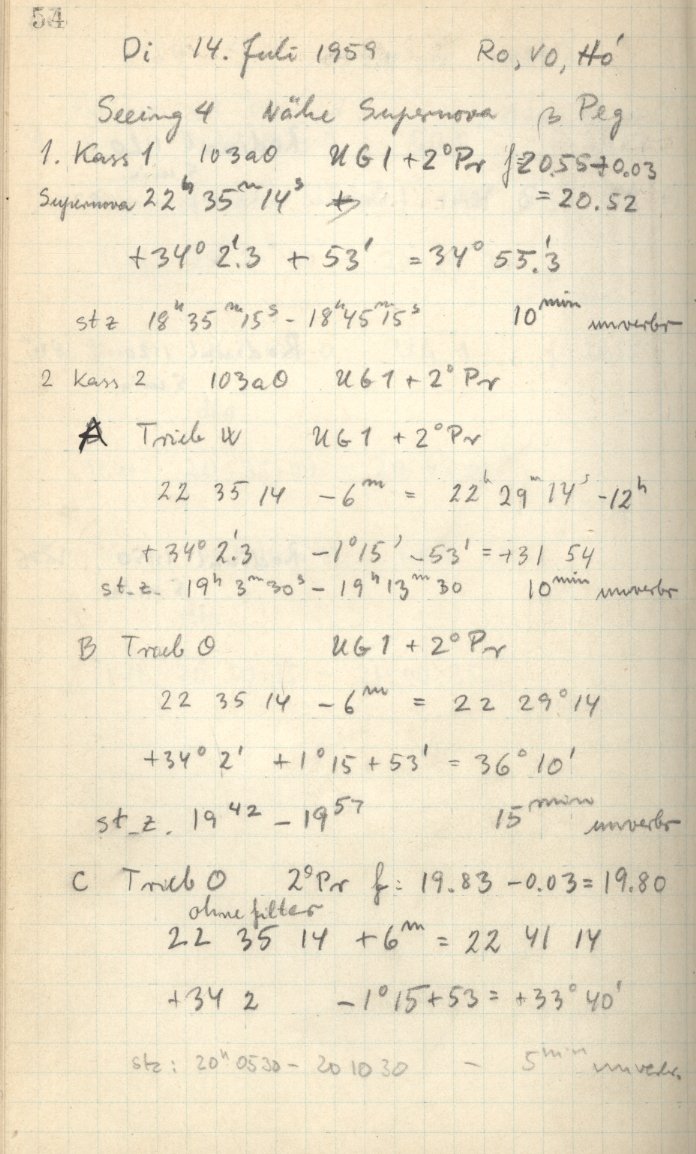 54
Di 14. Juli 1959 Ro, VO, Hó
Seeing 4 Nähe Supernova β Peg
1. Kass 1 103aO UG1 + 2° Pr f = 20.55 - 0.03
Supernova 22h 35m 14s = 20.52
+34° 2'.3 + 53' = 34° 55'.3
stz 18h 35m 15s - 18h 45m 15s 10min unverbr
2 Kass 2 103aO UG1 + 2° Pr
A Trieb W UG1 + 2° Pr
22 35 14 - 6m = 22h 29m 14s - 12h
+34° 2'.3 - 1° 15' - 53' = +31 54
st. z. 19h 3m 30s - 19h 13m 30 10min unverbr
B Trieb O UG1 + 2° Pr
22 35 14 - 6m = 22 29° 14
+34° 2' + 1° 15 + 53' = 36° 10'
st. z. 19 42 - 19 57 15min unverbr
C Trieb O 2° Pr f: 19.83 - 0.03 = 19.80
ohne filter
22 35 14 + 6m = 22 41 14
+34 2 - 1° 15 + 53 = +33° 40'
stz: 20h 0530 - 20 10 30 - 5min unverbr.